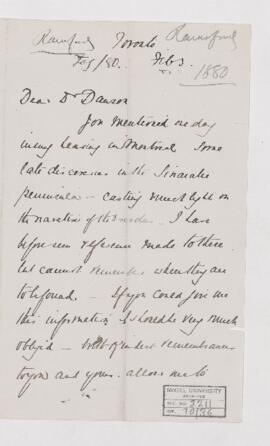 Rainsford
Rainsford
Toronto
Feb 3/80.
Feb 3.
1880
Dear Dr Dawson
You mentioned one day
in my hearing in Montreal some
late discoveries in the Sinaitic
peninsula - casting much light on
the narrative of the - I have
before seen reference made to these
but cannot remember where they are
to be found. - If you could give me
this information I should be very much
obliged - with kindest remembrances
to you and yours. allow me to
McGILL UNIVERSITY
ARCHIVES
ACC. NO. 2211
REF.